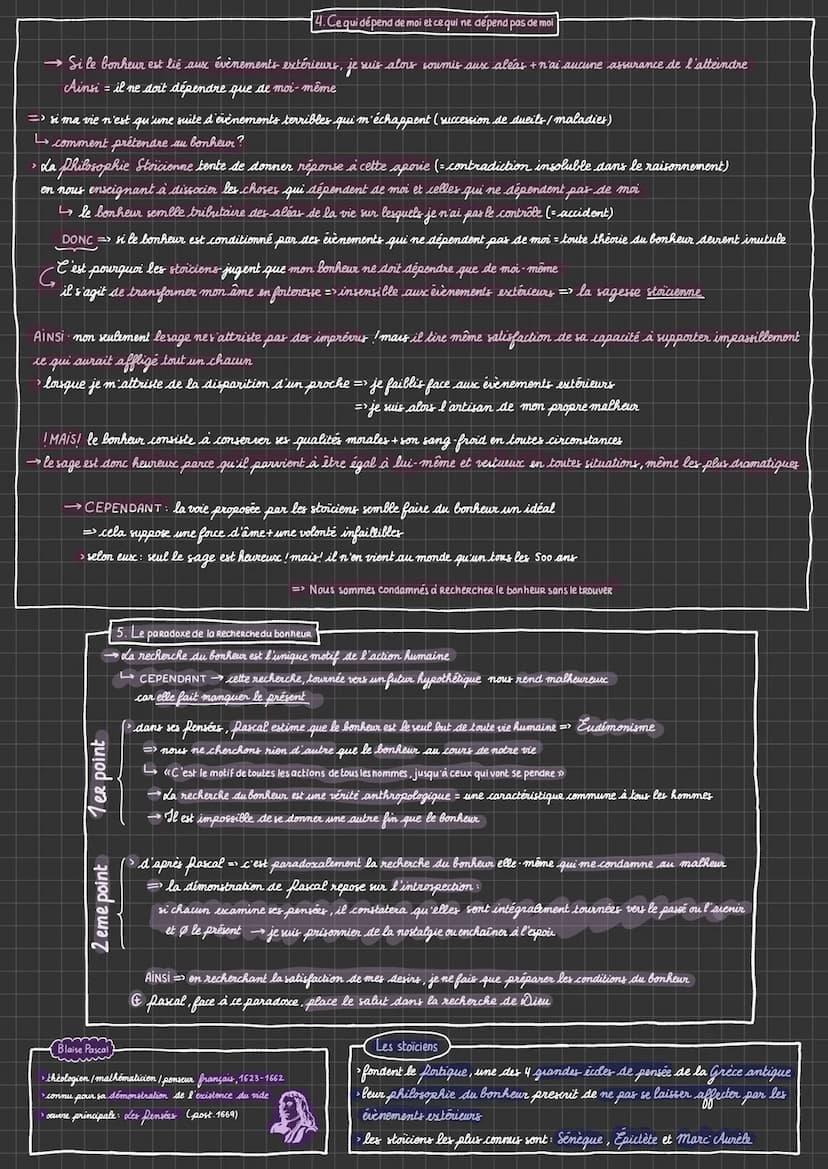 4. Ce qui dépend de moi et ce qui ne dépend pas de moi
→ Si le bonheur est lié aux évènements extérieurs, je suis alors soumis aux aléas + n'ai aucune assurance de l'atteindre
Ainsi = il ne doit dépendre que de moi-même
=> si ma vie n'est qu'une suite d'évènements terribles qui m'échappent (succession de dueils/maladies)
↳ comment prétendre au bonheur ?
> La Philosophie Stoïcienne tente de donner réponse à cette aporie (= contradiction insoluble dans le raisonnement)
en nous enseignant à dissocier les choses qui dépendent de moi et celles qui ne dépendent pas de moi
↳ le bonheur semble tributaire des aléas de la vie sur lesquels je n'ai pas le contrôle (= accident)
DONC => si le bonheur est conditionné par des évènements qui ne dépendent pas de moi = toute théorie du bonheur devient inutule
C'est pourquoi les stoïciens jugent que mon bonheur ne doit dépendre que de moi-même
il s'agit de transformer mon âme en forteresse => insensible aux évènements extérieurs => la sagesse stoïcienne
AINSI · non seulement le sage ne s'attriste pas des imprévus ! mais il tire même satisfaction de sa capacité à supporter impassiblement
ce qui aurait affligé tout un chacun
> lorsque je m'attriste de la disparition d'un proche => je faiblis face aux évènements extérieurs
=> je suis alors l'artisan de mon propre malheur
! MAIS ! le bonheur consiste à conserver ses qualités morales + son sang-froid en toutes circonstances
→ le sage est donc heureux parce qu'il parvient à être égal à lui-même et vertueux en toutes situations, même les plus dramatiques
→ CEPENDANT : la voie proposée par les stoïciens semble faire du bonheur un idéal
=> cela suppose une force d'âme + une volonté infaillibles
> selon eux : seul le sage est heureux ! mais ! il n'en vient au monde qu'un tous les 500 ans
=> Nous sommes condamnés à rechercher le bonheur sans le trouver
5. Le paradoxe de la recherche du bonheur
→ La recherche du bonheur est l'unique motif de l'action humaine
↳ CEPENDANT → cette recherche, tournée vers un futur hypothétique nous rend malheureux
car elle fait manquer le présent
1er point
> dans ses Pensées, Pascal estime que le bonheur est le seul but de toute vie humaine => Eudémonisme
=> nous ne cherchons rien d'autre que le bonheur au cours de notre vie
↳ « C'est le motif de toutes les actions de tous les hommes, jusqu'à ceux qui vont se pendre »
→ La recherche du bonheur est une vérité anthropologique = une caractéristique commune à tous les hommes
→ Il est impossible de se donner une autre fin que le bonheur
2eme point
> d'après Pascal => c'est paradoxalement la recherche du bonheur elle-même qui me condamne au malheur
=> la démonstration de Pascal repose sur l'introspection :
si chacun examine ses pensées, il constatera qu'elles sont intégralement tournées vers le passé ou l'avenir
et Ø le présent → je suis prisonnier de la nostalgie ou enchaîner à l'espoir
AINSI => en recherchant la satisfaction de mes desirs, je ne fais que préparer les conditions du bonheur
⊕ Pascal, face à ce paradoxe, place le salut dans la recherche de Dieu
Blaise Pascal
> théologien/mathématicien/penseur français, 1623-1662
> connu pour sa démonstration de l'existence du vide
> œuvre principale : Les Pensées (post. 1669)
Les stoïciens
> fondent le Portique, une des 4 grandes écoles de pensée de la Grèce antique
> leur philosophie du bonheur prescrit de ne pas se laisser affecter par les
évènements extérieurs
> les stoïciens les plus connus sont : Sénèque, Épictète et Marc Aurèle